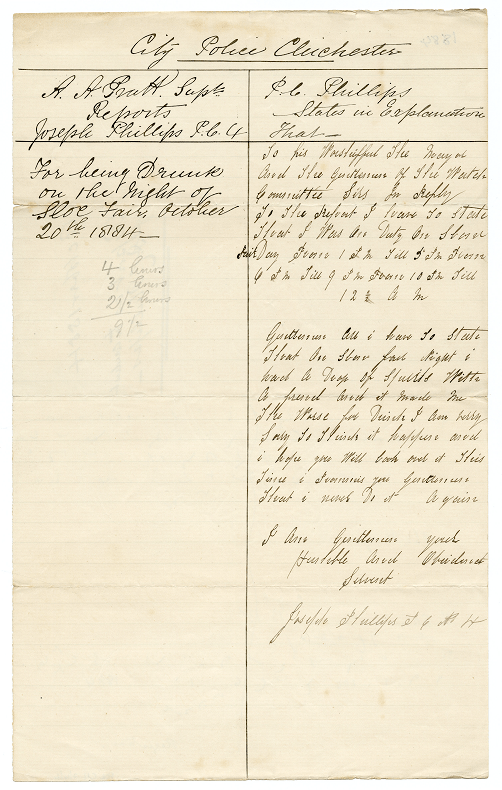 City Police Chichester
A. A. Pratt. Supt.
Reports
Joseph Phillips P.C. 4
For being Drunk
on the Night of
Sloe Fair, October
20th 1884—
4 hours
3 hours
2 1/2 hours
9 1/2
P.C. Phillips
States in Explanation
That—
To his Worshipful The Mayor
And The Gentlemen of The Watch
Committee Sirs In Reply
To The Report I have To State
That I Was On Duty On Slow
Fair Day From 1 P.m Till 5 P.m From
6 P.m Till 9 P.m From 10 P.m Till
12 ½ A M
Gentlemen All i have To State
That On Slow fair Night i
had A Drop Of Spirits With
A friend And it made Me
The Worse for Drink I Am very
Sorry To Think it happen and
i hope you Will look over it This
Time i Promise you Gentlemen
That i never Do it Again
I Am Gentlemen your
Humble And
Servent
Joseph Phillips P C No 4
1884